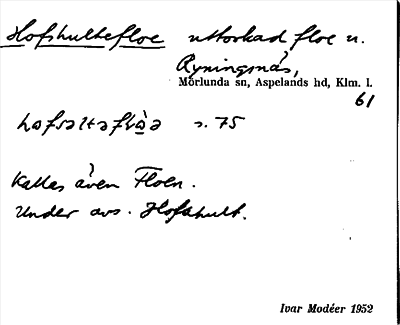 Hofshultefloe uttorkad floe v.
Ryningsnäs,
Mörlunda sn, Aspelands hd, Klm. l.
61
s. 75
Kallas även Floen.
Under avs. Hofshult.
Ivar Modéer 1952